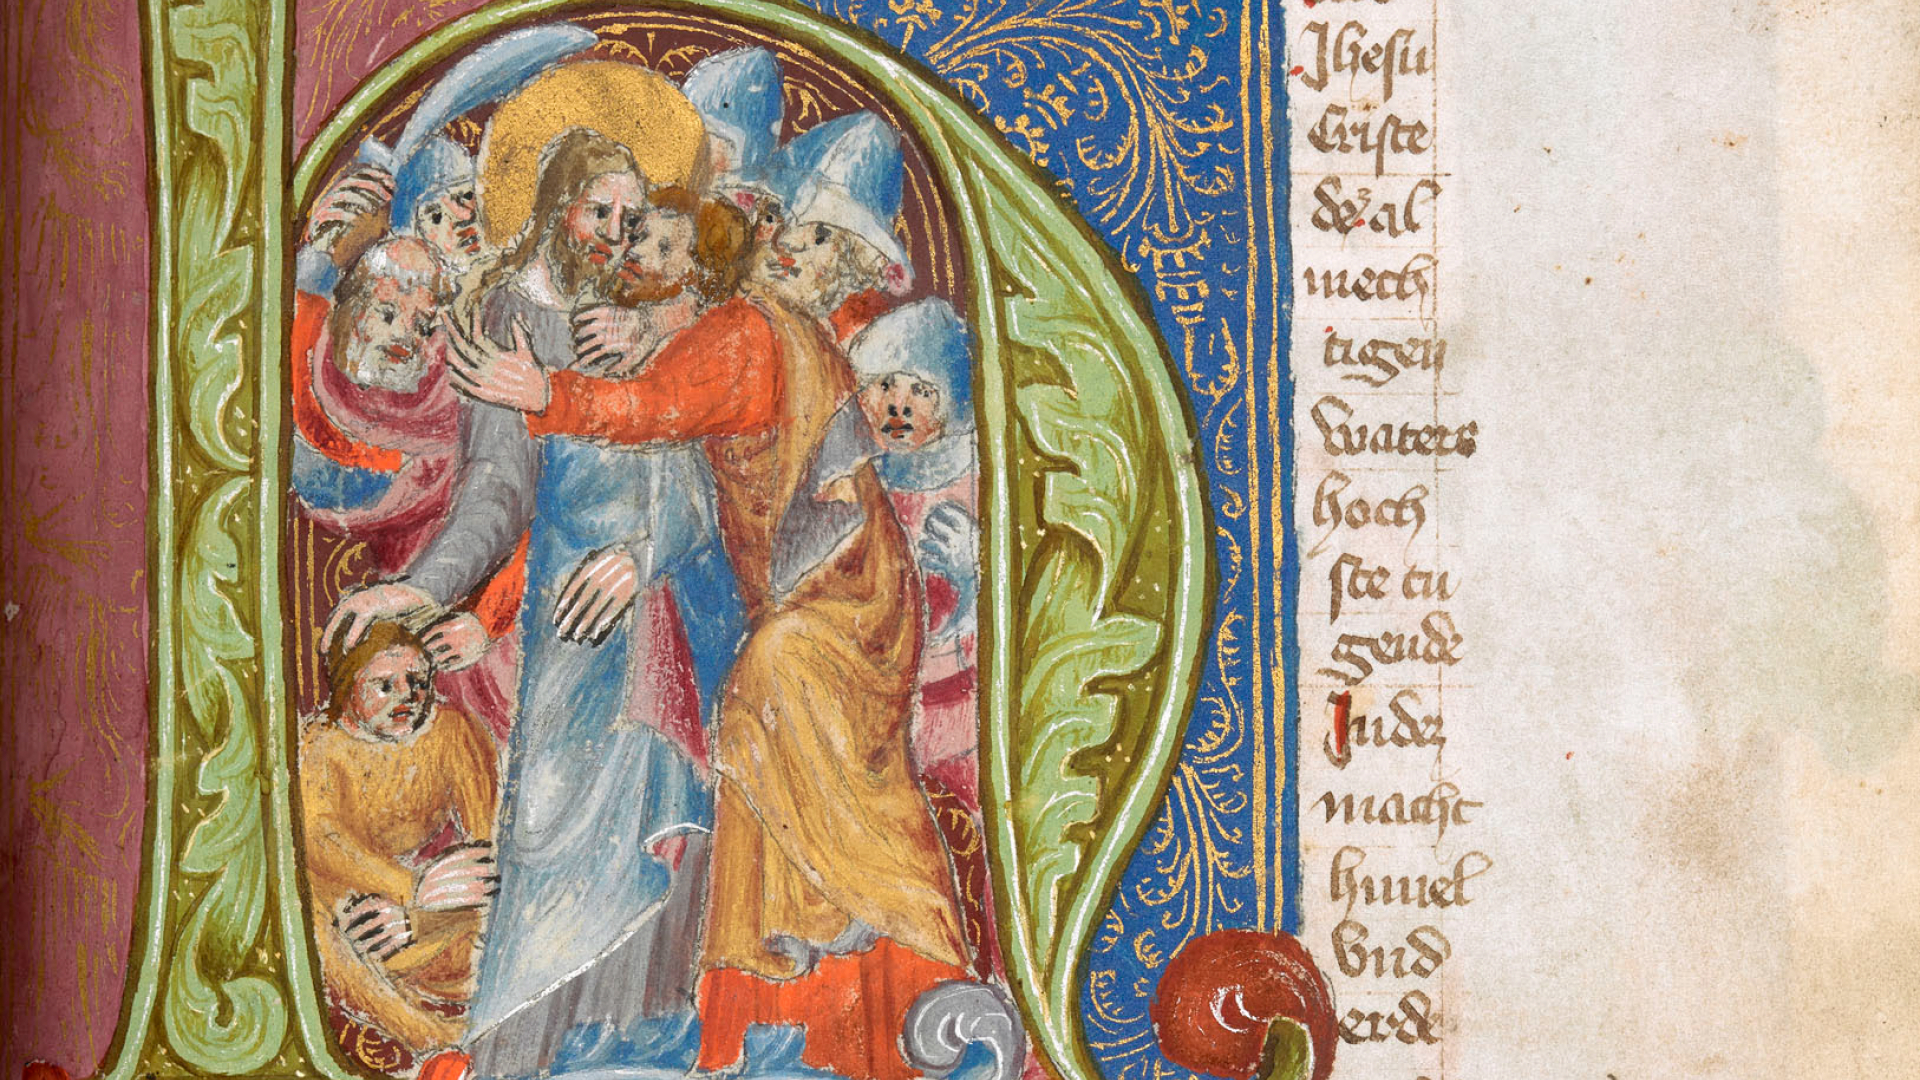 Ihesu
Criste
dez al
mech
tigen
vvaters
hoch
ste tu
gende
In dez
macht
himel
vnd
erde